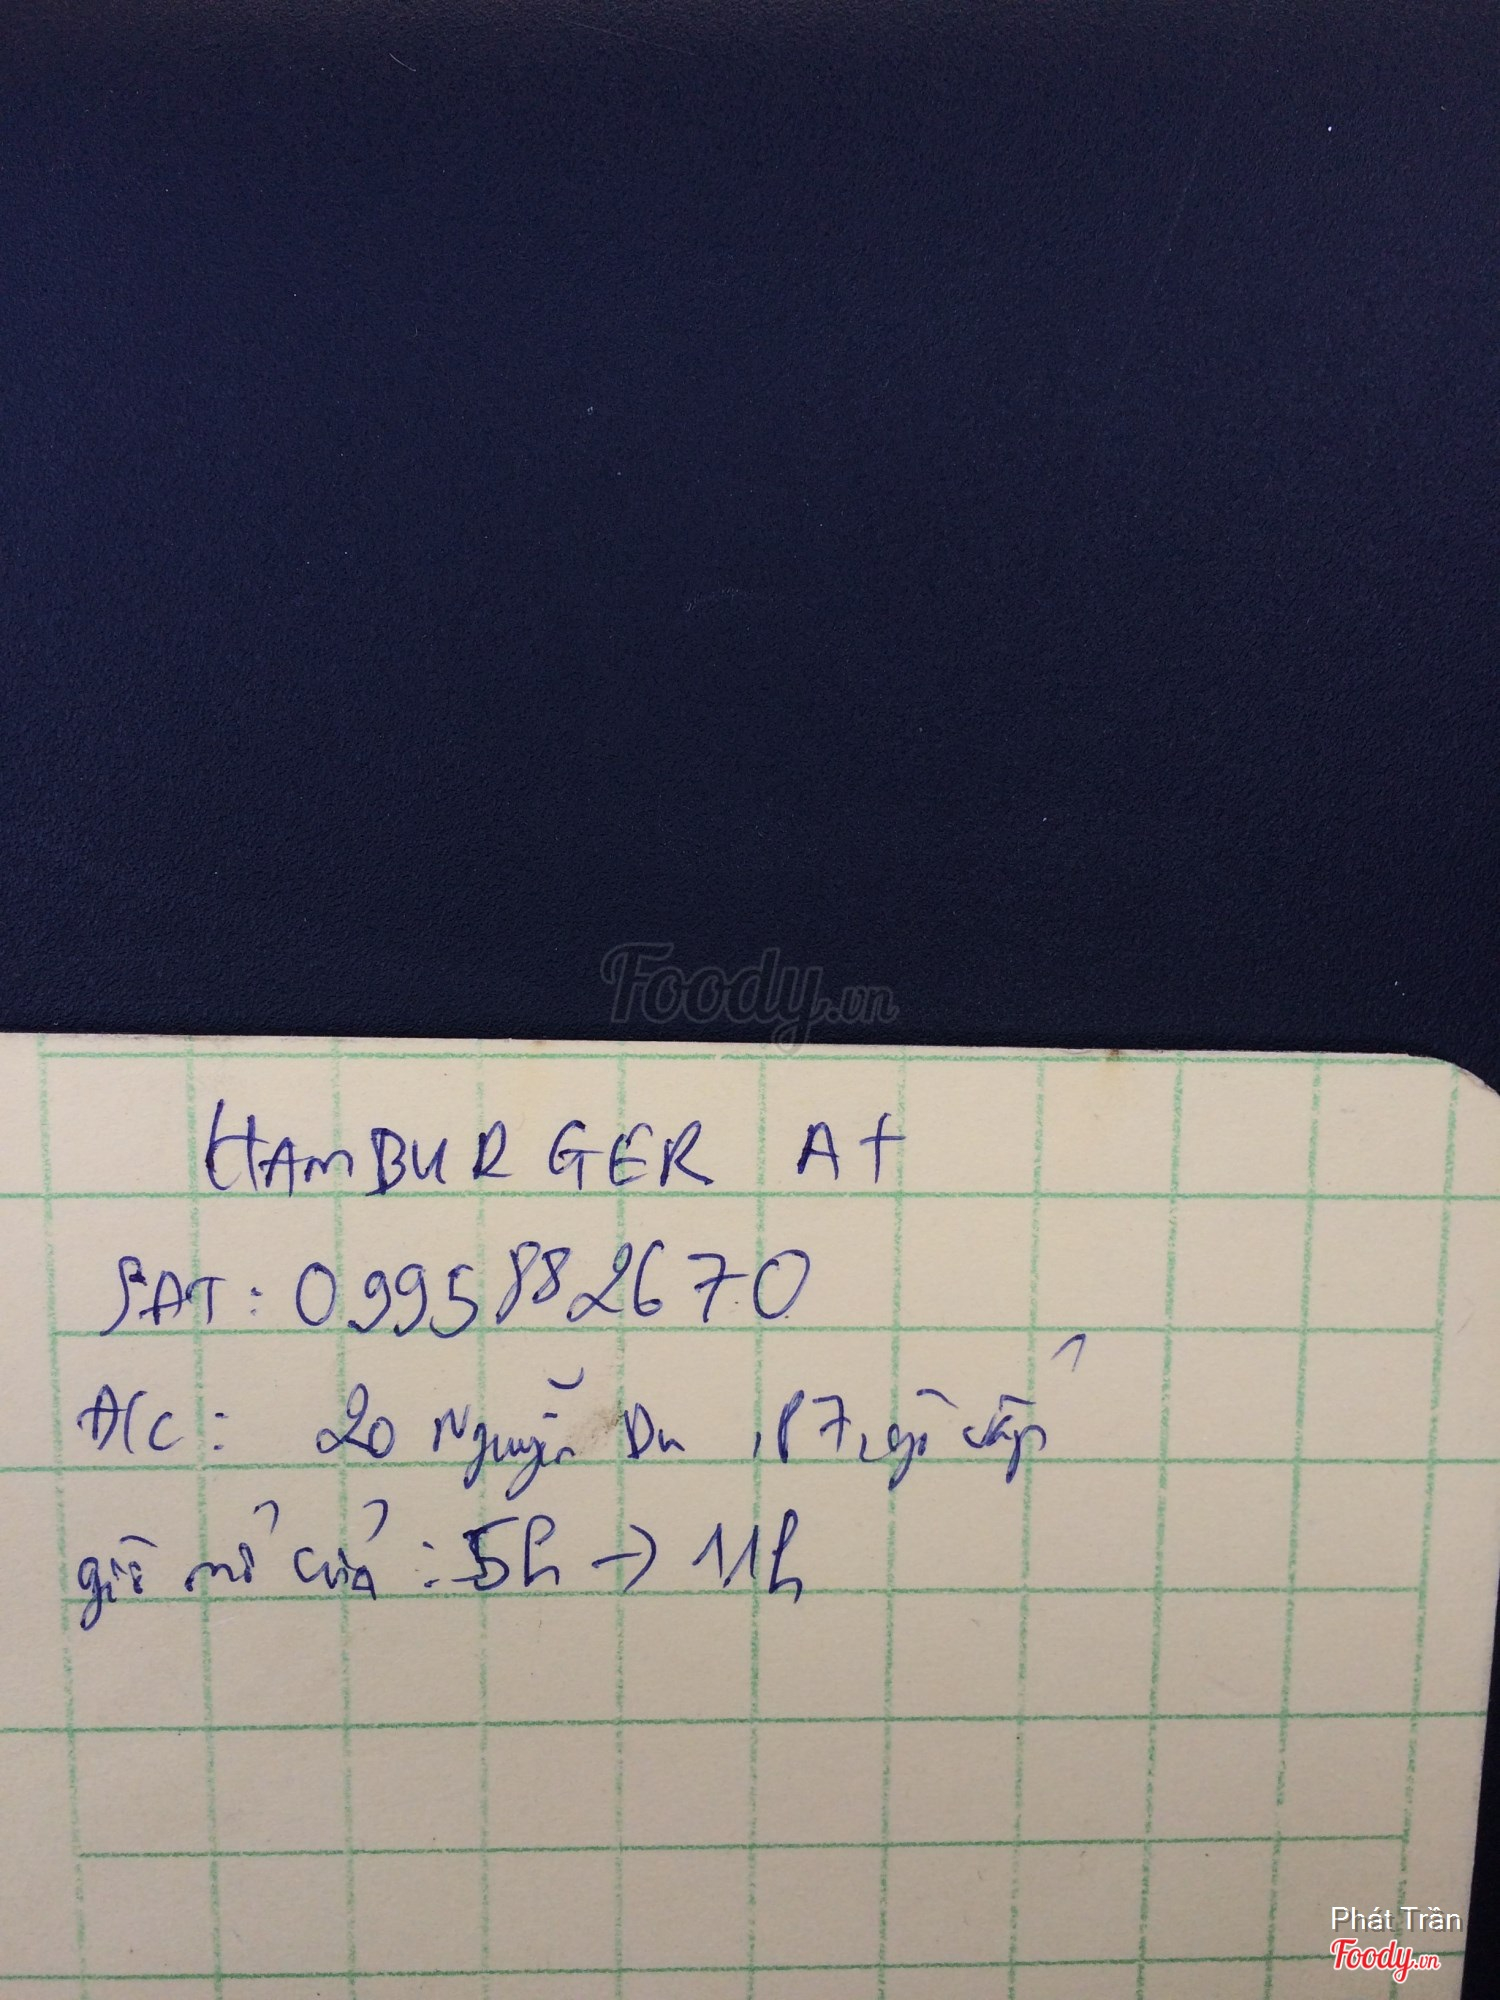 Foody.vn
HAMBURGER A+
SĐT: 0995882670
Đ/c: 20 Nguyễn Du, P7, gò vấp
giờ mở cửa: 5h → 11h
Phát Trần
Foody.vn